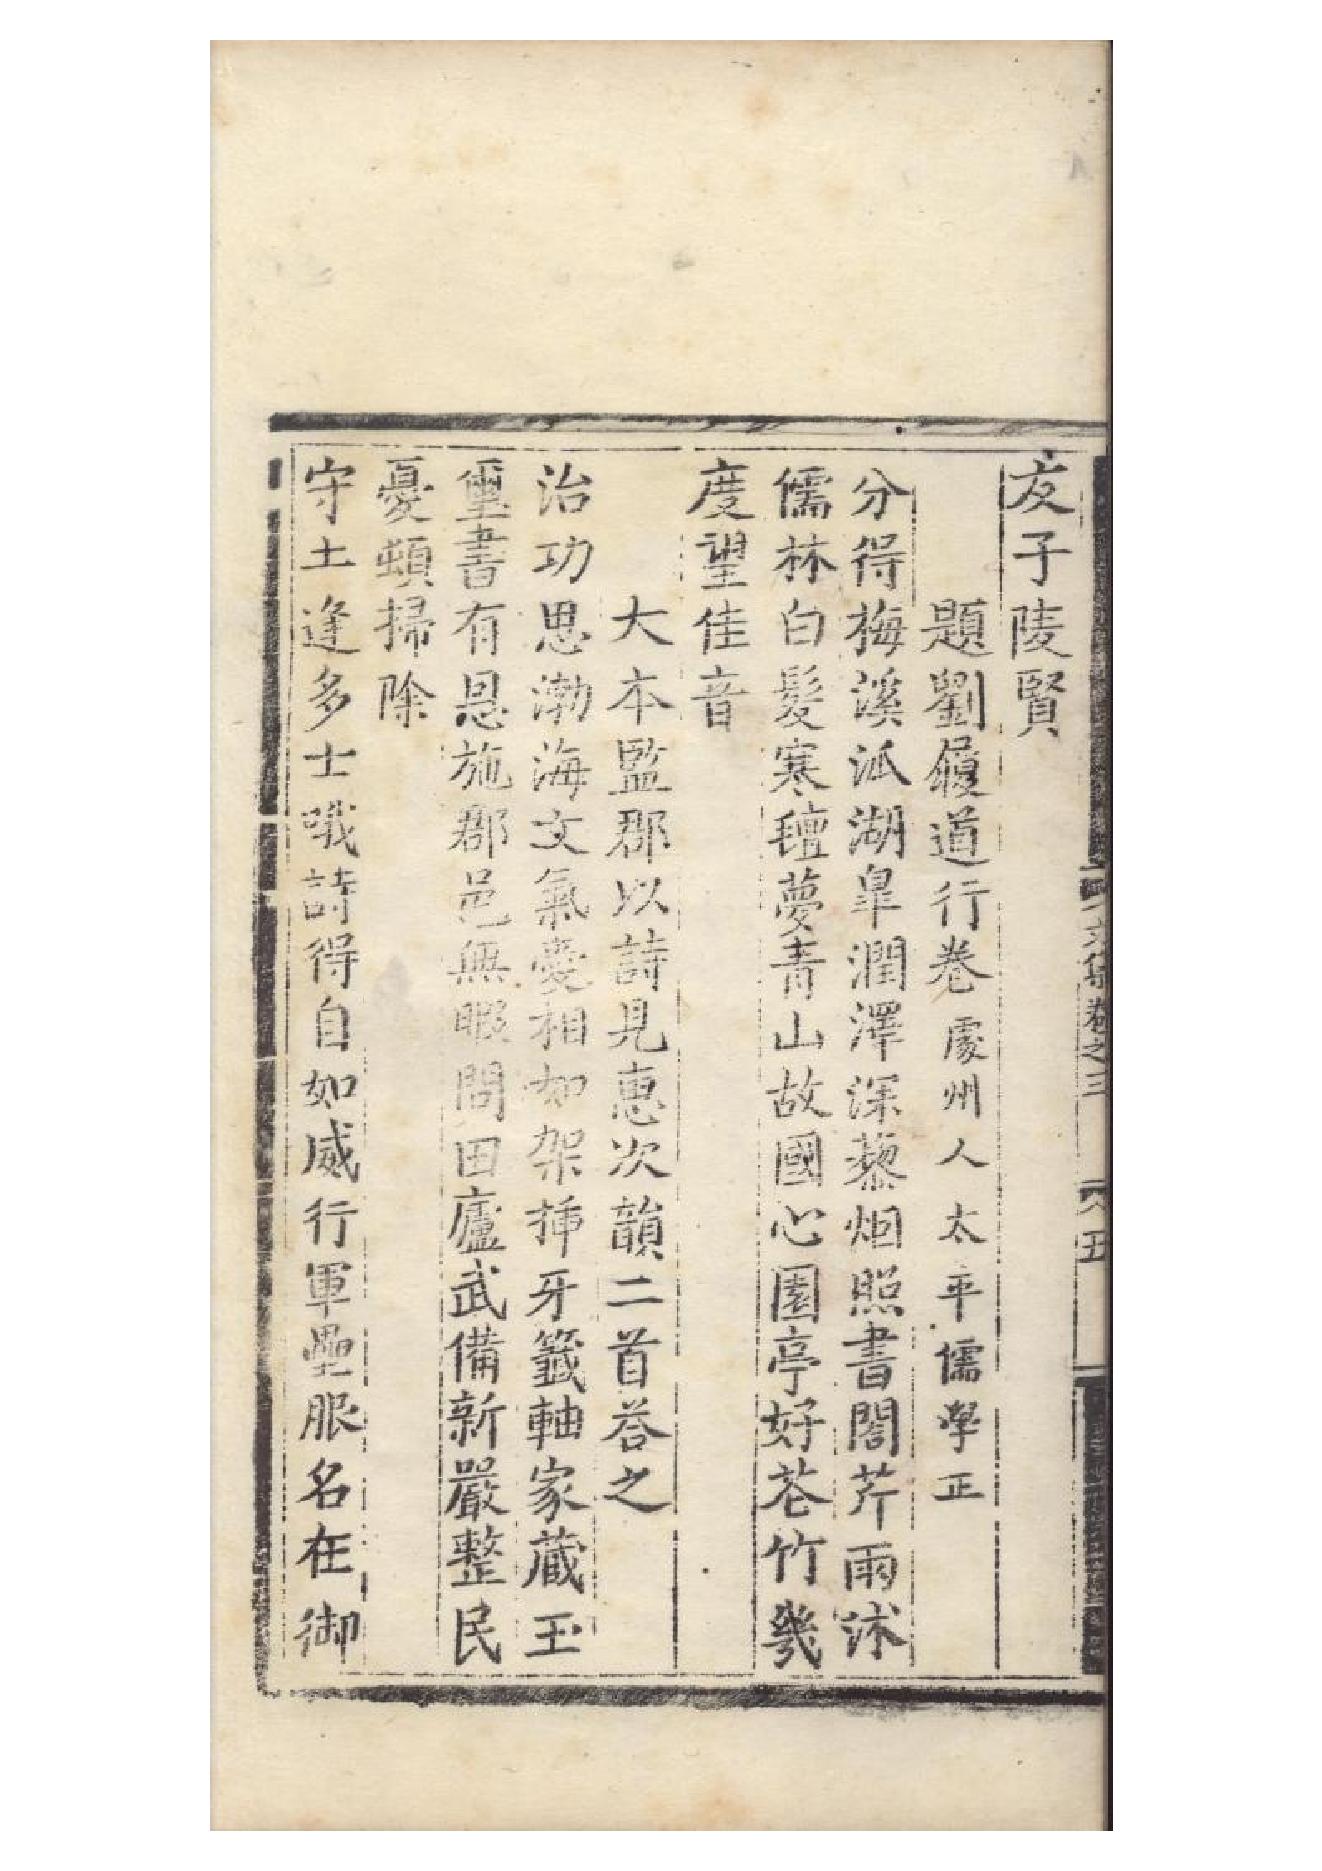 友子陵賢
題劉履道行卷處州人太平儒學正
分得梅溪派湖皐潤澤深藜烟照書閣芹雨沭
儒林白髪寒氊夢青山故國心園亭好花竹幾
度望佳音
大本監郡以詩見惠次韻二首荅之
治功思渤海文氣愛相如架揷牙籖軸家蔵玉
璽書有恩施郡邑無暇問田廬武備新嚴整民
憂頓掃除
守土逢多士哦詩得自如威行軍壘服名在御